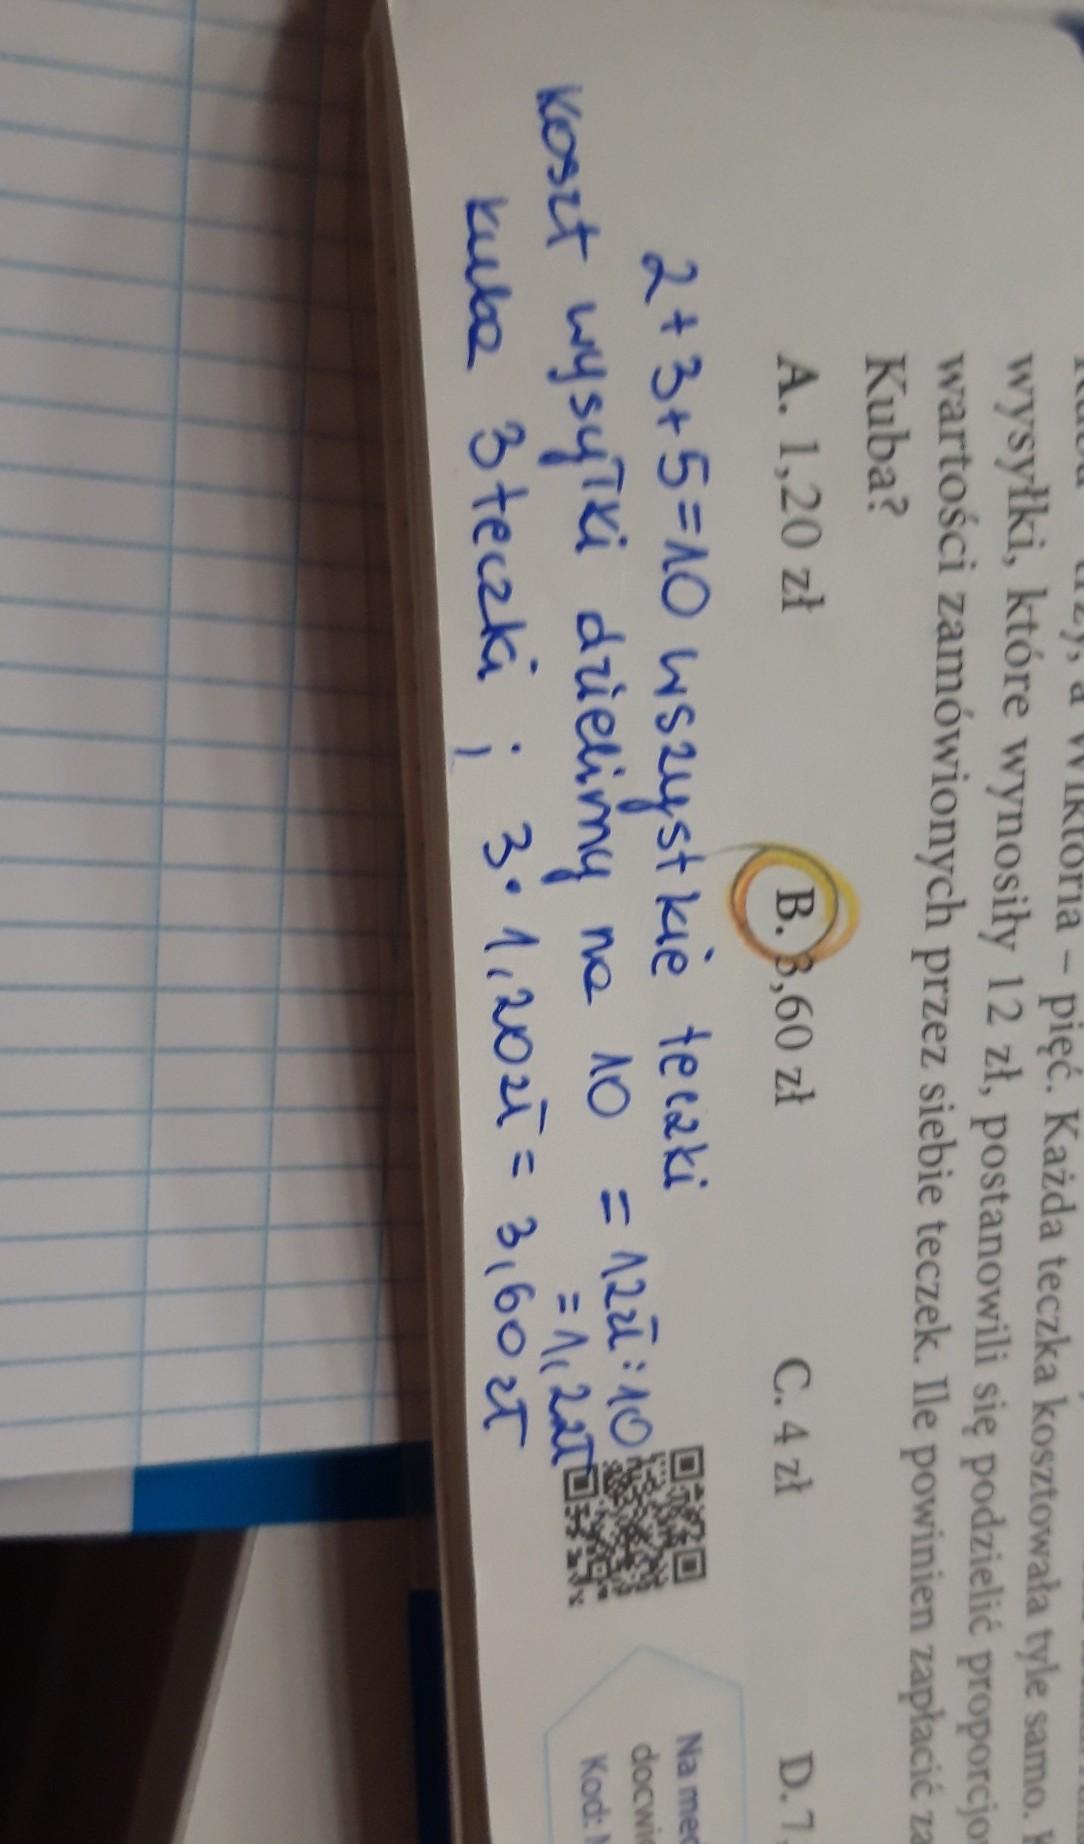 trzy, a Wiktoria – pięć. Każda teczka kosztowała tyle samo.
wysyłki, które wynosiły 12 zł, postanowili się podzielić proporcjo
wartości zamówionych przez siebie teczek. Ile powinien zapłacić za
Kuba?
A. 1,20 zł B. 3,60 zł C. 4 zł D. 7,
2+3+5=10 wszystkie teczki
koszt wysyłki dzielimy na 10 = 12zł:10
=1,2zł
Kuba 3 teczki ; 3·1,20zł = 3,60 zł
Na med
docwic
Kod: